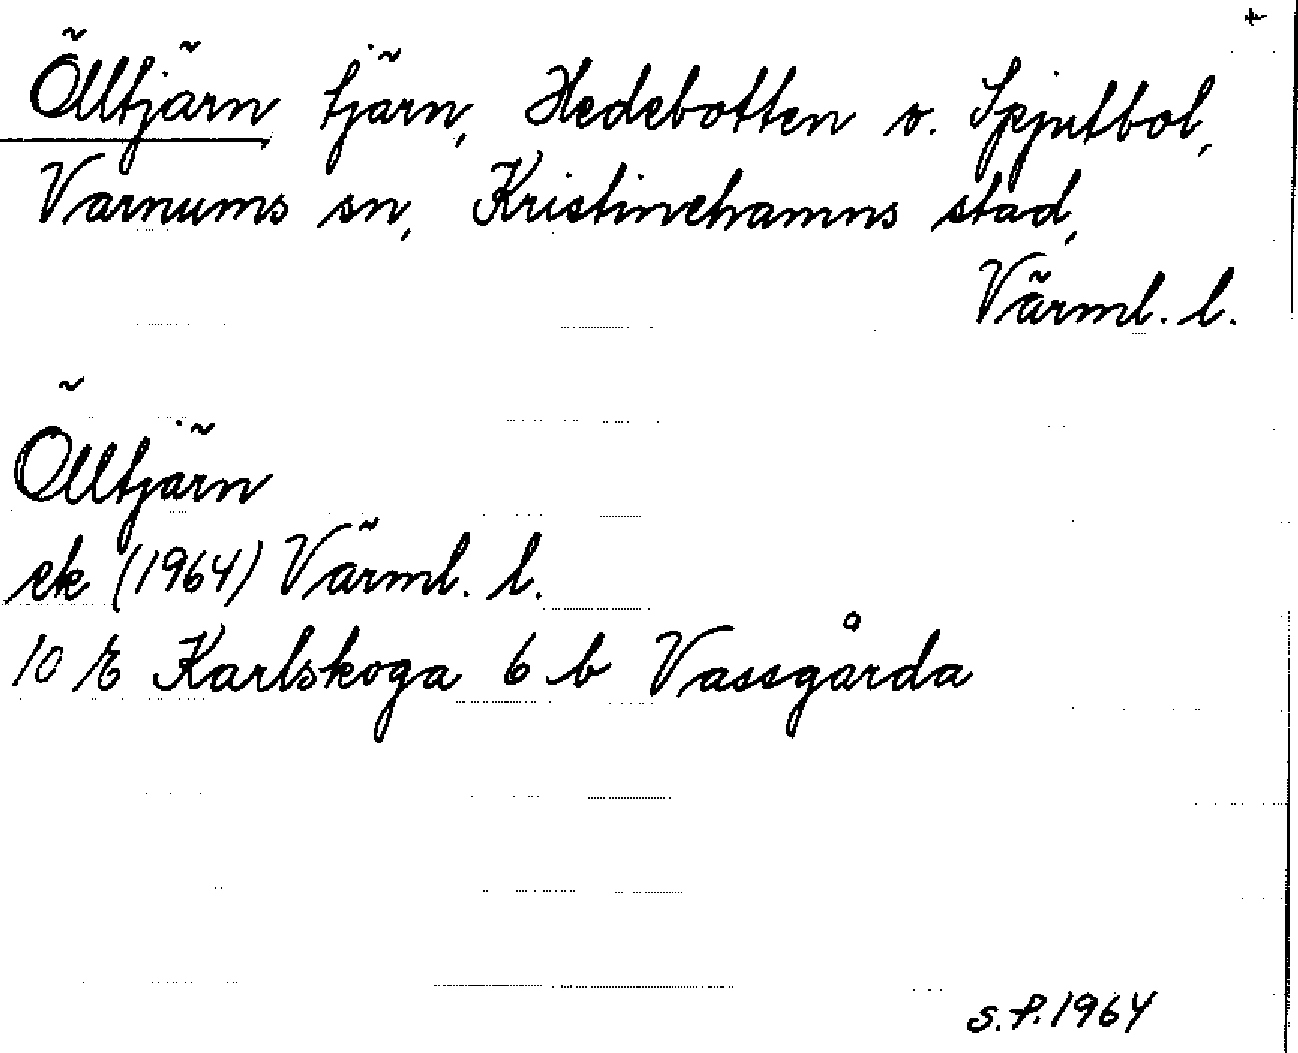 +
Ölltjärn tjärn, Hedebotten o. Spjutbol,
Varnums sn, Kristinehamns stad,
Värml. l.
Ölltjärn
ek (1964) Värml. l.
10 E Karlskoga 6 b Vassgårda
s.f. 1964